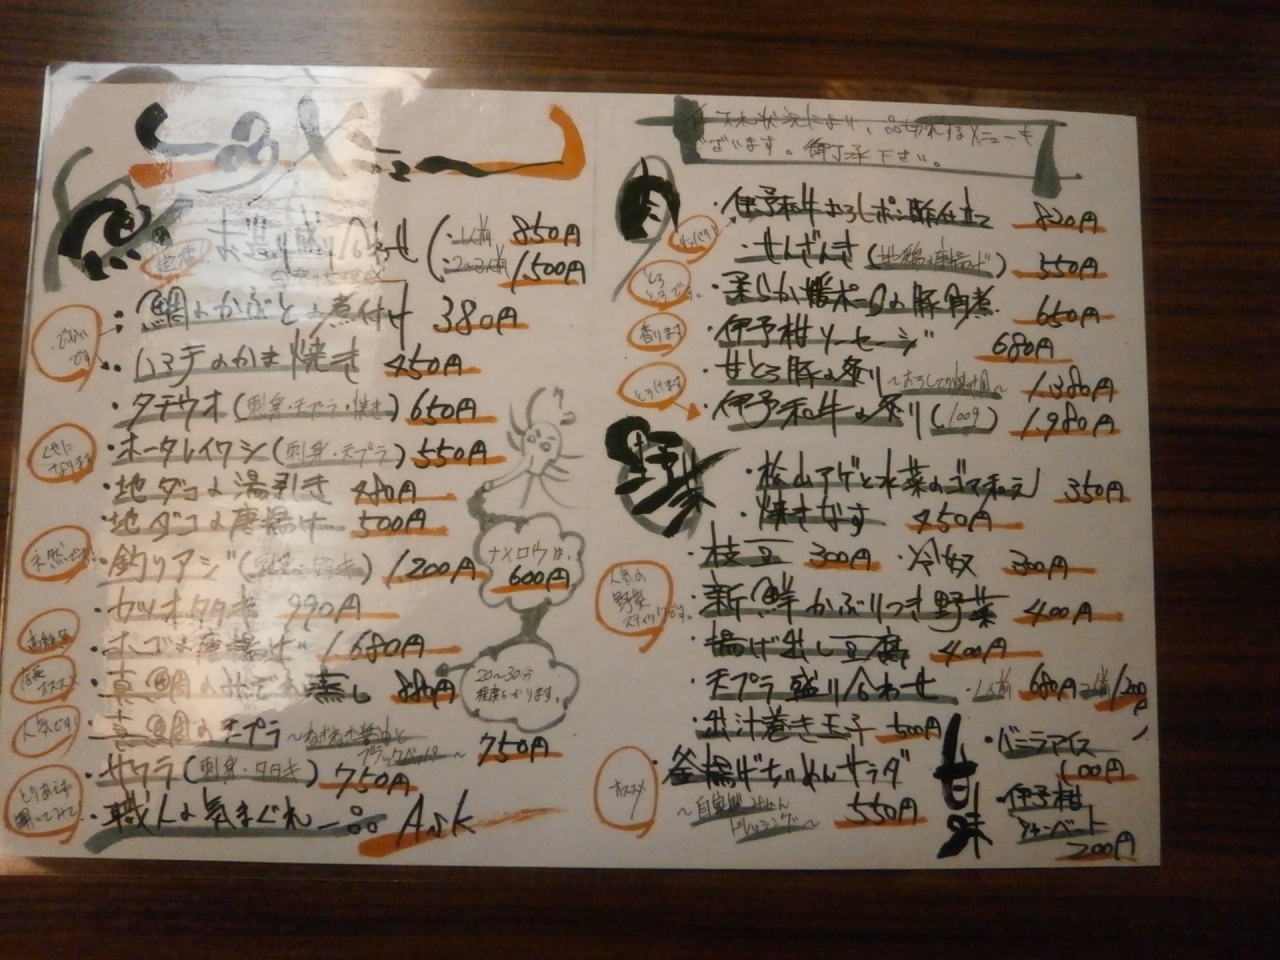 メニュー
魚
お造り盛り合わせ
1人前 850円
2〜3人前 1,500円
でかいです
・鯛のかぶとの煮付け 380円
・ハマチのかま焼き 450円
・タチウオ(刺身・天プラ・焼き) 650円
くせになります
・ホータレイワシ(刺身・天プラ) 550円
・地ダコの湯引き 480円
地ダコの唐揚げ 500円
・釣りアジ 1,200円
ナメロウは、
600円
・カツオタタキ 990円
唐揚げ 1,680円
店長オススメ
・真鯛のみぞれ蒸し 880円
20〜30分
程度かかります。
人気です!
・真鯛の天プラ 750円
・サワラ(刺身・タタキ) 750円
とりあえず聞いてみて!
・職人の気まぐれ一品 Ask
状況により、品切れするメニューも
ございます。御了承下さい。
肉
・伊予和牛おろしポン酢仕立て 820円
・せんざんき(地鶏の唐揚げ) 550円
とろとろです。
・柔らか媛ポークの豚角煮 650円
香ります
・伊予柑ソーセージ 680円
・甘とろ豚の炙り 1,380円
とろけます
・伊予和牛の炙り(100g) 1,980円
野菜
・松山アゲと水菜のゴマ和え 350円
・焼きなす 450円
・枝豆 300円 ・冷奴 300円
人気の
野菜
スティックです。
・新鮮かぶりつき野菜 400円
・揚げ出し豆腐 400円
・天プラ盛り合わせ ・1人前 680円 2人前 1,200円
・出汁巻き玉子 500円
オススメ
・釜揚げちりめんサラダ
550円
〜自家製
ドレッシング〜
甘味
・バニラアイス
100円
・伊予柑
シャーベット
200円